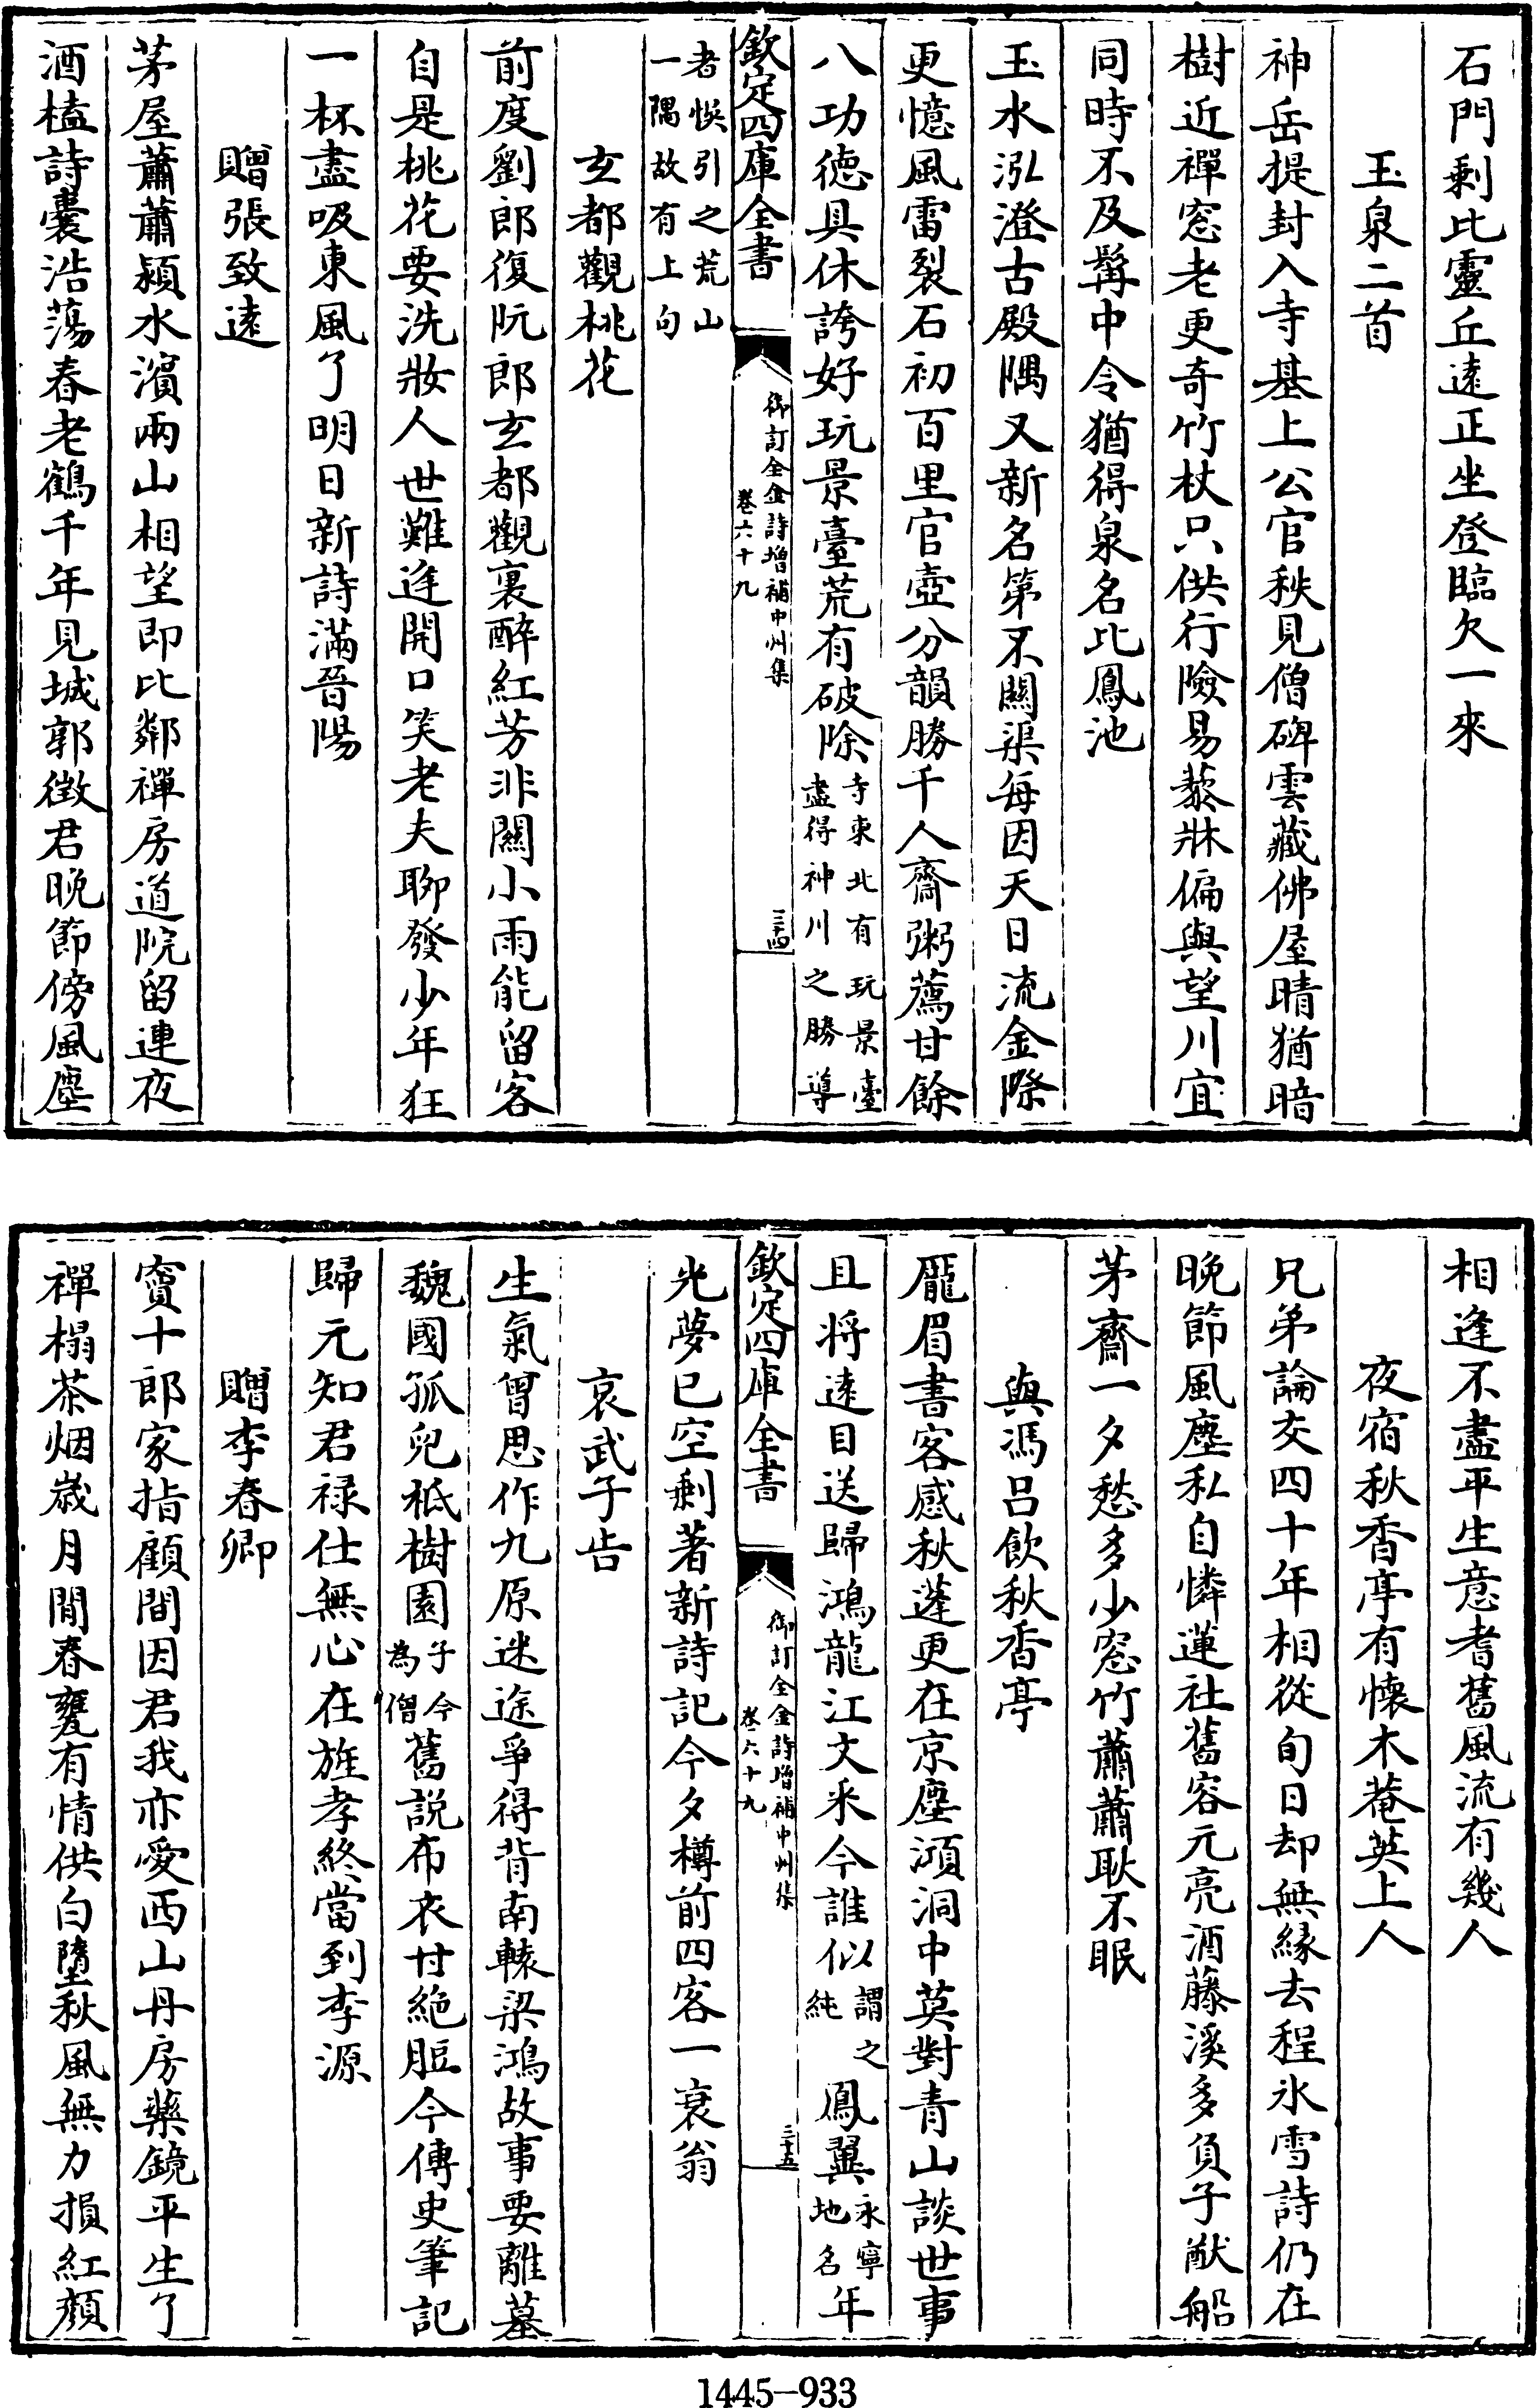 石門剰比靈丘遠正坐登臨欠一來
玉泉二首
神岳提封入寺基上公官秩見僧碑雲藏佛屋晴猶暗
樹近禪窓老更竒竹杖只供行險易藜牀偏與望川宜
同時不及髯中令猶得泉名比鳳池
玉水泓澄古殿隅又新名第不闗渠每因天日流金際
更憶風雷裂石初百里官壺分韻勝千人齋粥薦甘餘
八功徳具休誇好玩景臺荒有破除寺東北有玩景臺
盡得神川之勝導
欽定四庫全書
御訂全金詩增補中州集
卷六十九
三十四
者悞引之荒山
一隅故有上句
玄都觀桃花
前度劉郎復阮郎玄都觀裏醉紅芳非闗小雨能留客
自是桃花要洗妝人世難逢開口笑老夫聊發少年狂
一杯盡吸東風了明日新詩滿晉陽
贈張致遠
茅屋蕭蕭潁水濱兩山相望即比鄰禪房道院留連夜
酒榼詩囊浩蕩春老鶴千年見城郭徴君晚節傍風塵
相逢不盡平生意耆舊風流有幾人
夜宿秋香亭有懐木菴英上人
兄弟論交四十年相從旬日却無縁去程氷雪詩仍在
晚節風塵私自憐蓮社舊容元亮酒藤溪多負子猷船
茅齋一夕愁多少窓竹蕭蕭耿不眠
與馮呂飲秋香亭
龎眉書客感秋蓬更在京塵澒洞中莫對青山談世事
且將遠目送歸鴻龍江文采今誰似謂之
純
鳳翼永寧
地名
年
欽定四庫全書
御訂全金詩增補中州集
卷六十九
三十五
光夢已空剰著新詩記今夕樽前四客一衰翁
哀武子告
生氣曾思作九原迷途爭得背南轅梁鴻故事要離墓
魏國孤兒祗樹園子今
為僧
舊説布衣甘絶脰今傳史筆記
歸元知君禄仕無心在旌孝終當到李源
贈李春卿
竇十郎家指顧間因君我亦愛西山丹房藥鏡平生了
禪榻茶烟嵗月閒春甕有情供白墮秋風無力損紅顔
1445-933